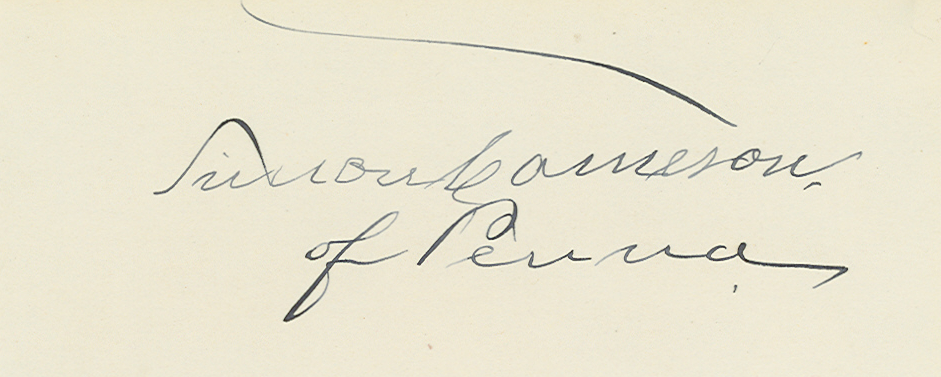 Simon Cameron,
of Penna